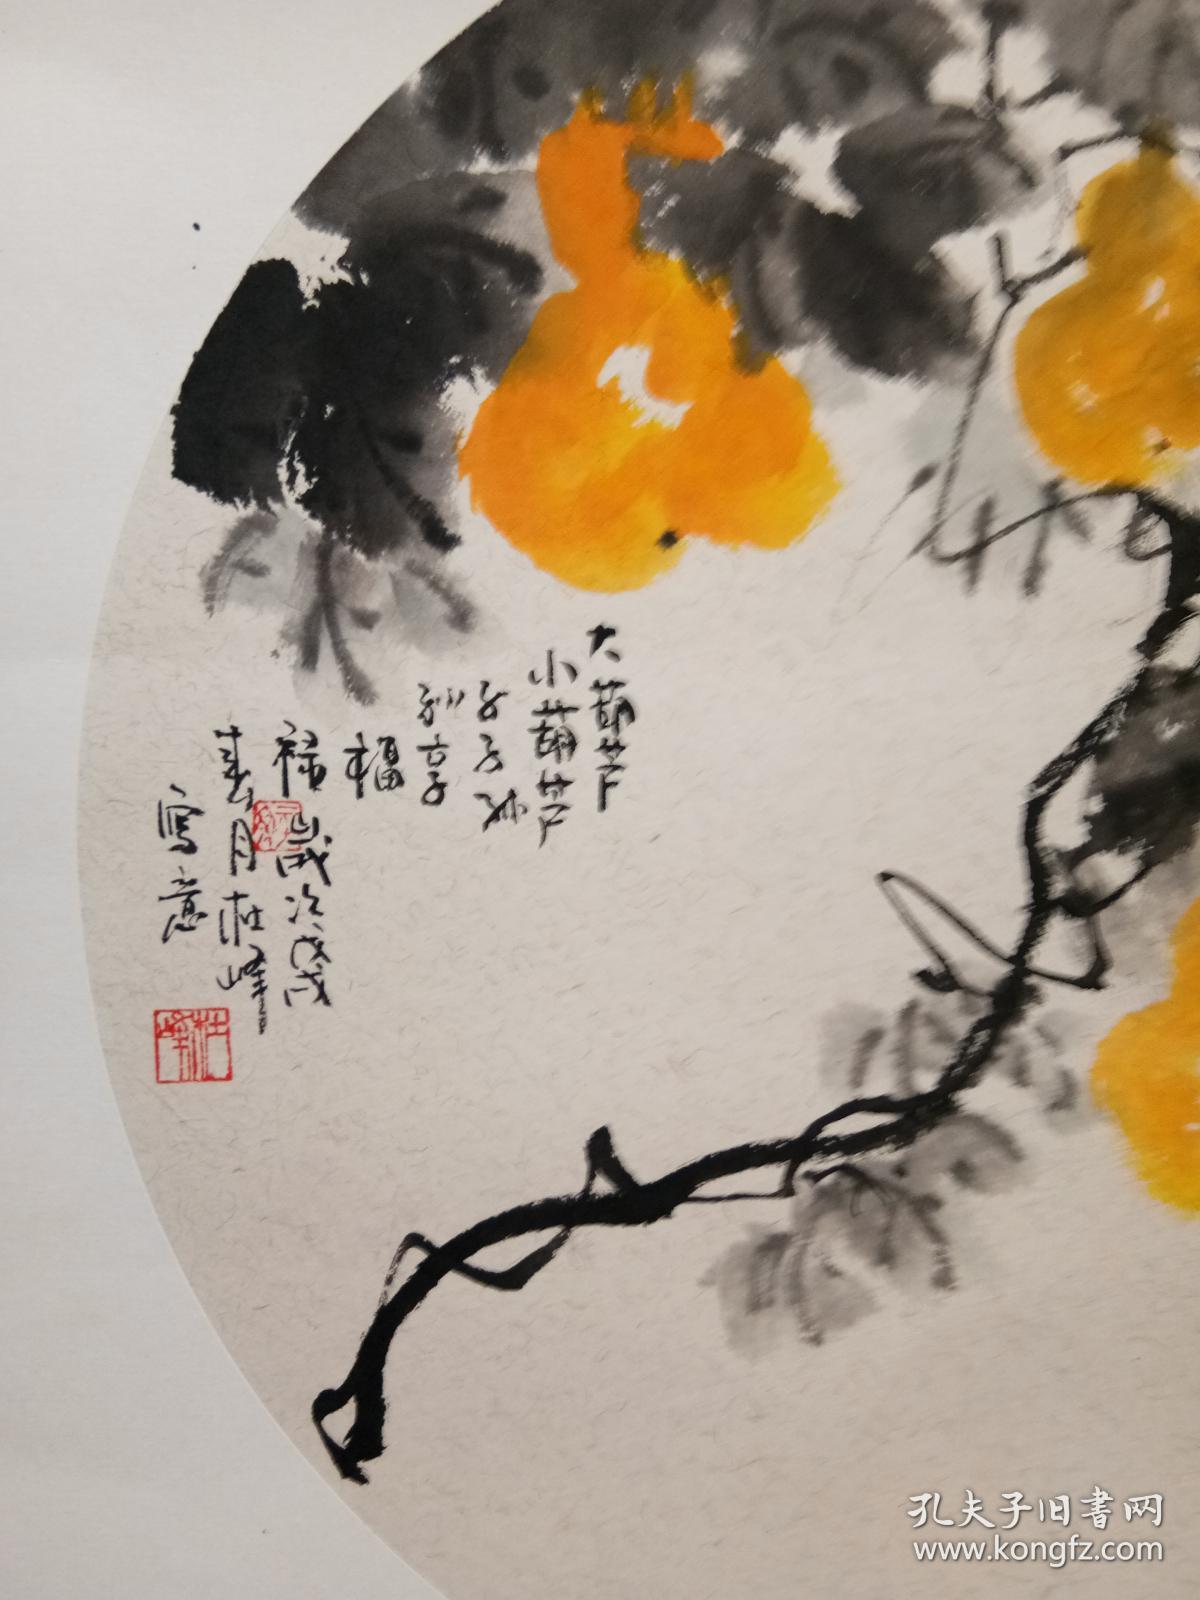 大葫芦
小葫芦
子子
孙享
福
禄 歲次戊戌
春月杜峰
寫意
杜峰
孔夫子旧书网
www.kongfz.com